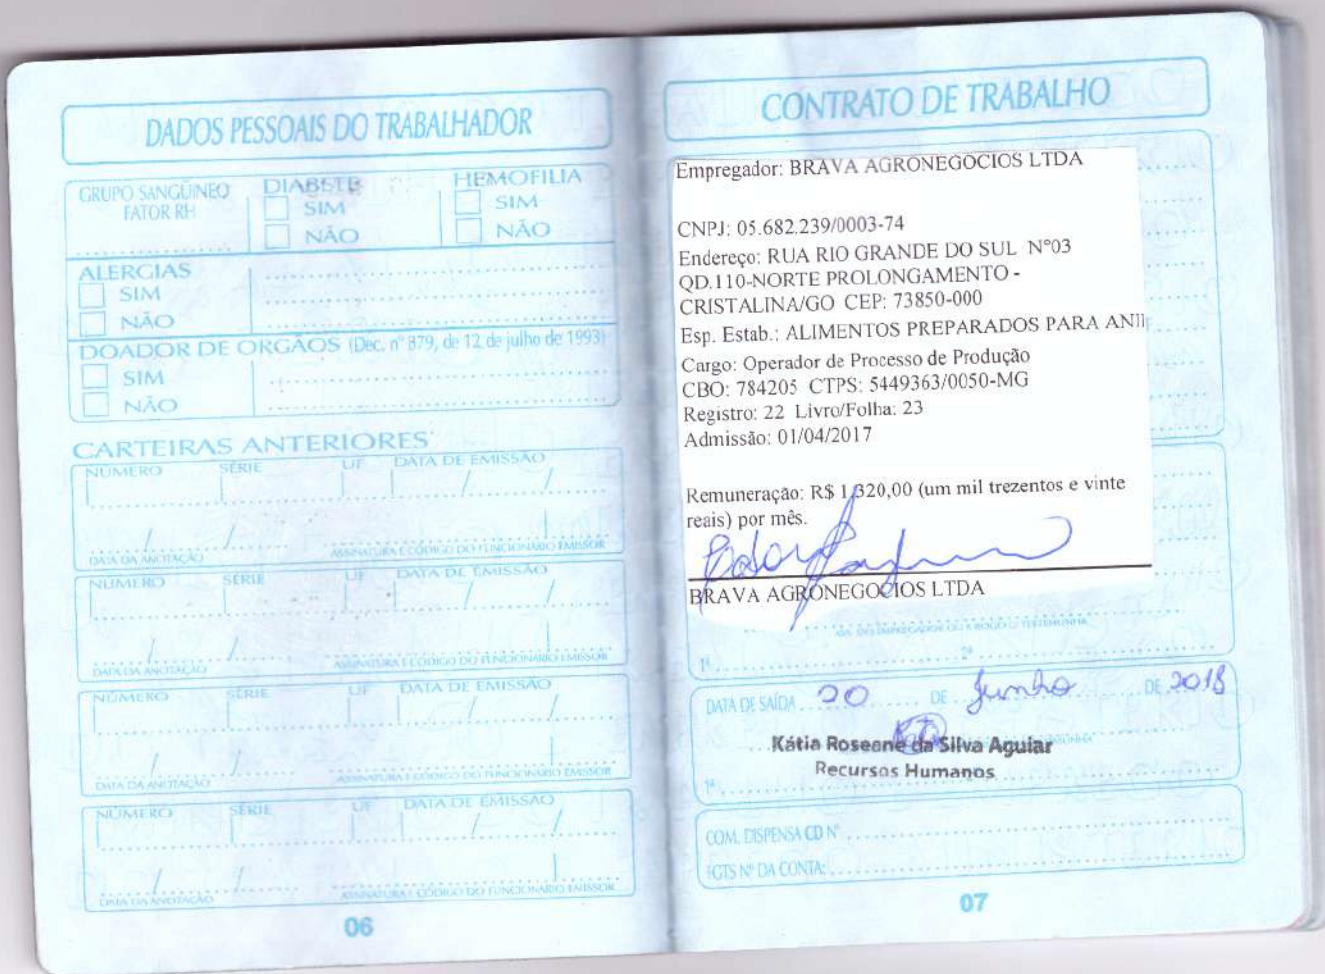 DADOS PESSOAIS DO TRABALHADOR
GRUPO SANGÜINEO
FATOR RH
DIABETE
SIM
NÃO
HEMOFILIA
SIM
NÃO
ALERGIAS
SIM
NÃO
DOADOR DE ORGÃOS (Dec. nº 879, de 12 de julho de 1993)
SIM
NÃO
CARTEIRAS ANTERIORES
NÚMERO SÉRIE UF DATA DE EMISSÃO
DATA DA ANOTAÇÃO ASSINATURA E CÓDIGO DO FUNCIONÁRIO EMISSOR
NÚMERO SÉRIE UF DATA DE EMISSÃO
DATA DA ANOTAÇÃO ASSINATURA E CÓDIGO DO FUNCIONÁRIO EMISSOR
NÚMERO SÉRIE UF DATA DE EMISSÃO
DATA DA ANOTAÇÃO ASSINATURA E CÓDIGO DO FUNCIONÁRIO EMISSOR
NÚMERO SÉRIE UF DATA DE EMISSÃO
DATA DA ANOTAÇÃO ASSINATURA E CÓDIGO DO FUNCIONÁRIO EMISSOR
06
CONTRATO DE TRABALHO
Empregador: BRAVA AGRONEGOCIOS LTDA
CNPJ: 05.682.239/0003-74
Endereço: RUA RIO GRANDE DO SUL N°03
QD.110-NORTE PROLONGAMENTO -
CRISTALINA/GO CEP: 73850-000
Esp. Estab.: ALIMENTOS PREPARADOS PARA ANI
Cargo: Operador de Processo de Produção
CBO: 784205 CTPS: 5449363/0050-MG
Registro: 22 Livro/Folha: 23
Admissão: 01/04/2017
Remuneração: R$ 1,320,00 (um mil trezentos e vinte
reais) por mês.
BRAVA AGRONEGOCIOS LTDA
ASS. DO EMPREGADOR OU A ROGO C/ TESTEMUNHA
1ª 2ª
DATA DE SAÍDA 20 DE Junho DE 2018
Kátia Roseane da Silva Aguiar
Recursos Humanos
1ª
COM. DISPENSA CD Nº
FGTS Nº DA CONTA:
07